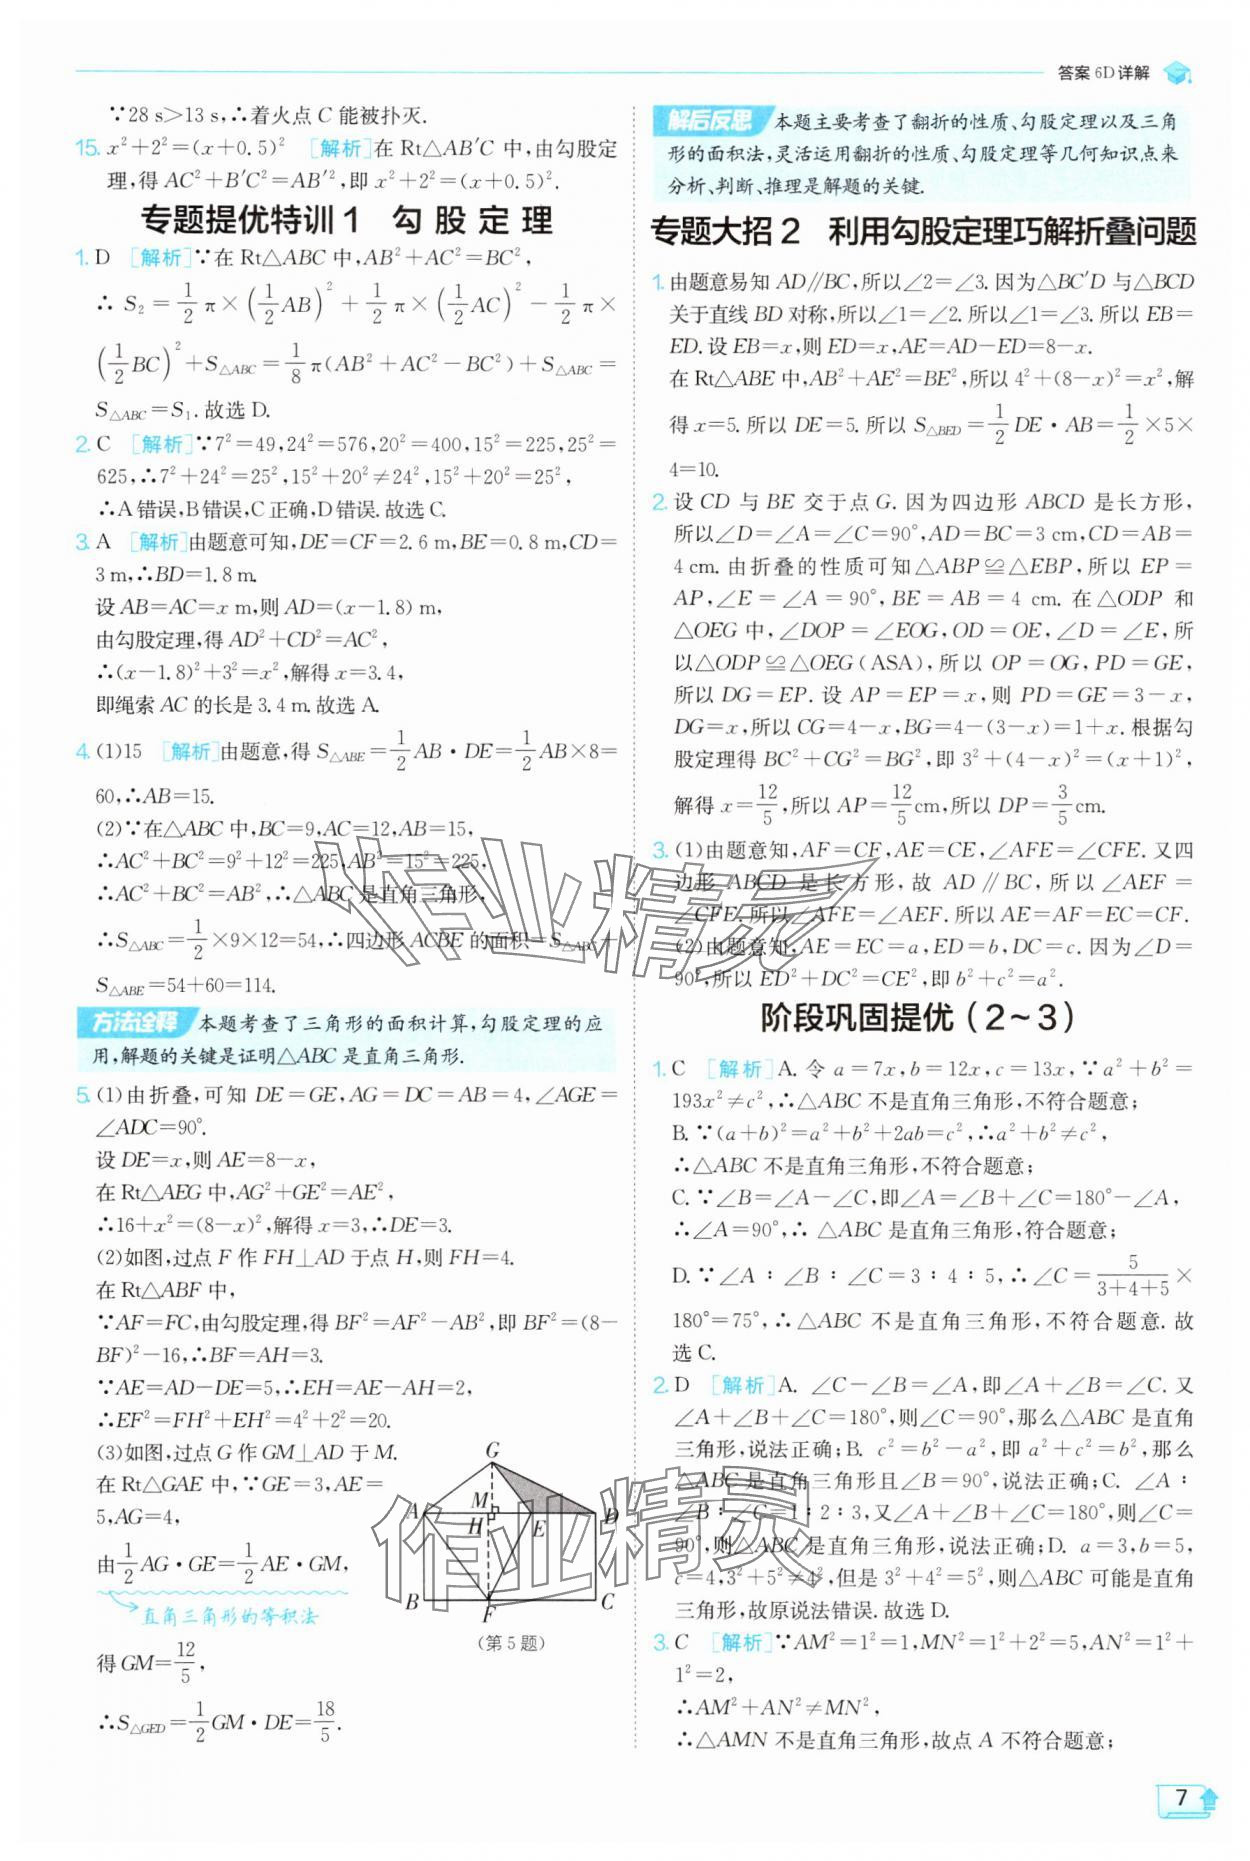 答案 6D详解
∵28 s>13 s,∴着火点 C 能被扑灭.
15. x²+2²=(x+0.5)² [解析]在 Rt△AB′C 中,由勾股定
理,得 AC²+B′C²=AB′²,即 x²+2²=(x+0.5)².
专题提优特训 1 勾 股 定 理
1. D [解析]∵在 Rt△ABC 中,AB²+AC²=BC²,
∴ S₂=1/2 π×(1/2 AB)²+1/2 π×(1/2 AC)²−1/2 π×
(1/2 BC)²+S△ABC=1/8 π(AB²+AC²−BC²)+S△ABC=
S△ABC=S₁.故选 D.
2. C [解析]∵7²=49,24²=576,20²=400,15²=225,25²=
625,∴7²+24²=25²,15²+20²≠24²,15²+20²=25²,
∴A 错误,B错误,C 正确,D错误.故选 C.
3. A [解析]由题意可知,DE=CF=2.6 m,BE=0.8 m,CD=
3 m,∴BD=1.8 m.
设 AB=AC=x m,则 AD=(x−1.8) m,
由勾股定理,得 AD²+CD²=AC²,
∴(x−1.8)²+3²=x²,解得 x=3.4,
即绳索 AC 的长是 3.4 m.故选 A.
4. (1)15 [解析]由题意,得 S△ABE=1/2 AB·DE=1/2 AB×8=
60,∴AB=15.
(2)∵在△ABC 中,BC=9,AC=12,AB=15,
∴AC²+BC²=9²+12²=225,AB²=15²=225,
∴AC²+BC²=AB²,∴△ABC 是直角三角形,
∴S△ABC=1/2×9×12=54,∴四边形 ACBE 的面积=S△ABC+
S△ABE=54+60=114.
方法诠释 本题考查了三角形的面积计算,勾股定理的应
用,解题的关键是证明△ABC 是直角三角形.
5. (1)由折叠,可知 DE=GE,AG=DC=AB=4,∠AGE=
∠ADC=90°.
设 DE=x,则 AE=8−x,
在 Rt△AEG 中,AG²+GE²=AE²,
∴16+x²=(8−x)²,解得 x=3,∴DE=3.
(2)如图,过点 F 作 FH⊥AD 于点 H,则 FH=4.
在 Rt△ABF 中,
∵AF=FC,由勾股定理,得 BF²=AF²−AB²,即 BF²=(8−
BF)²−16,∴BF=AH=3.
∵AE=AD−DE=5,∴EH=AE−AH=2,
∴EF²=FH²+EH²=4²+2²=20.
(3)如图,过点 G 作 GM⊥AD 于 M.
在 Rt△GAE 中,∵GE=3,AE=
5,AG=4,
由 1/2 AG·GE=1/2 AE·GM,
直角三角形的等积法
得 GM=12/5,
∴S△GED=1/2 GM·DE=18/5.
G
A M E D
H
B F C
(第 5 题)
解后反思 本题主要考查了翻折的性质、勾股定理以及三角
形的面积法,灵活运用翻折的性质、勾股定理等几何知识点来
分析、判断、推理是解题的关键.
专题大招 2 利用勾股定理巧解折叠问题
1. 由题意易知 AD∥BC,所以∠2=∠3.因为△BC′D 与△BCD
关于直线 BD 对称,所以∠1=∠2.所以∠1=∠3.所以 EB=
ED.设 EB=x,则 ED=x,AE=AD−ED=8−x.
在 Rt△ABE 中,AB²+AE²=BE²,所以 4²+(8−x)²=x²,解
得 x=5.所以 DE=5.所以 S△BED=1/2 DE·AB=1/2×5×
4=10.
2. 设 CD 与 BE 交于点 G. 因为四边形 ABCD 是长方形,
所以∠D=∠A=∠C=90°,AD=BC=3 cm,CD=AB=
4 cm. 由折叠的性质可知△ABP≌△EBP,所以 EP=
AP,∠E=∠A=90°,BE=AB=4 cm. 在△ODP 和
△OEG 中,∠DOP=∠EOG,OD=OE,∠D=∠E,所
以△ODP≌△OEG(ASA),所以 OP=OG,PD=GE,
所以 DG=EP. 设 AP=EP=x,则 PD=GE=3−x,
DG=x,所以 CG=4−x,BG=4−(3−x)=1+x. 根据勾
股定理得 BC²+CG²=BG²,即 3²+(4−x)²=(x+1)²,
解得 x=12/5,所以 AP=12/5 cm,所以 DP=3/5 cm.
3. (1)由题意知,AF=CF,AE=CE,∠AFE=∠CFE. 又四
边形 ABCD 是长方形,故 AD∥BC,所以∠AEF=
∠CFE.所以∠AFE=∠AEF.所以 AE=AF=EC=CF.
(2)由题意知,AE=EC=a,ED=b,DC=c. 因为∠D=
90°,所以 ED²+DC²=CE²,即 b²+c²=a².
阶段巩固提优(2~3)
1. C [解析]A. 令 a=7x,b=12x,c=13x,∵a²+b²=
193x²≠c²,∴△ABC 不是直角三角形,不符合题意;
B. ∵(a+b)²=a²+b²+2ab=c²,∴a²+b²≠c²,
∴△ABC 不是直角三角形,不符合题意;
C. ∵∠B=∠A−∠C,即∠A=∠B+∠C=180°−∠A,
∴∠A=90°,∴△ABC 是直角三角形,符合题意;
D. ∵∠A∶∠B∶∠C=3∶4∶5,∴∠C=5/(3+4+5)×
180°=75°,∴△ABC 不是直角三角形,不符合题意.故
选 C.
2. D [解析]A. ∠C−∠B=∠A,即∠A+∠B=∠C. 又
∠A+∠B+∠C=180°,则∠C=90°,那么△ABC 是直角
三角形,说法正确;B. c²=b²−a²,即 a²+c²=b²,那么
△ABC 是直角三角形且∠B=90°,说法正确;C. ∠A∶
∠B∶∠C=1∶2∶3,又∠A+∠B+∠C=180°,则∠C=
90°,则△ABC 是直角三角形,说法正确;D. a=3,b=5,
c=4,3²+5²≠4²,但是 3²+4²=5²,则△ABC 可能是直角
三角形,故原说法错误.故选 D.
3. C [解析]∵AM²=1²=1,MN²=1²+2²=5,AN²=1²+
1²=2,
∴AM²+AN²≠MN²,
∴△AMN 不是直角三角形,故点 A 不符合题意;
作业精灵
作业精灵
7